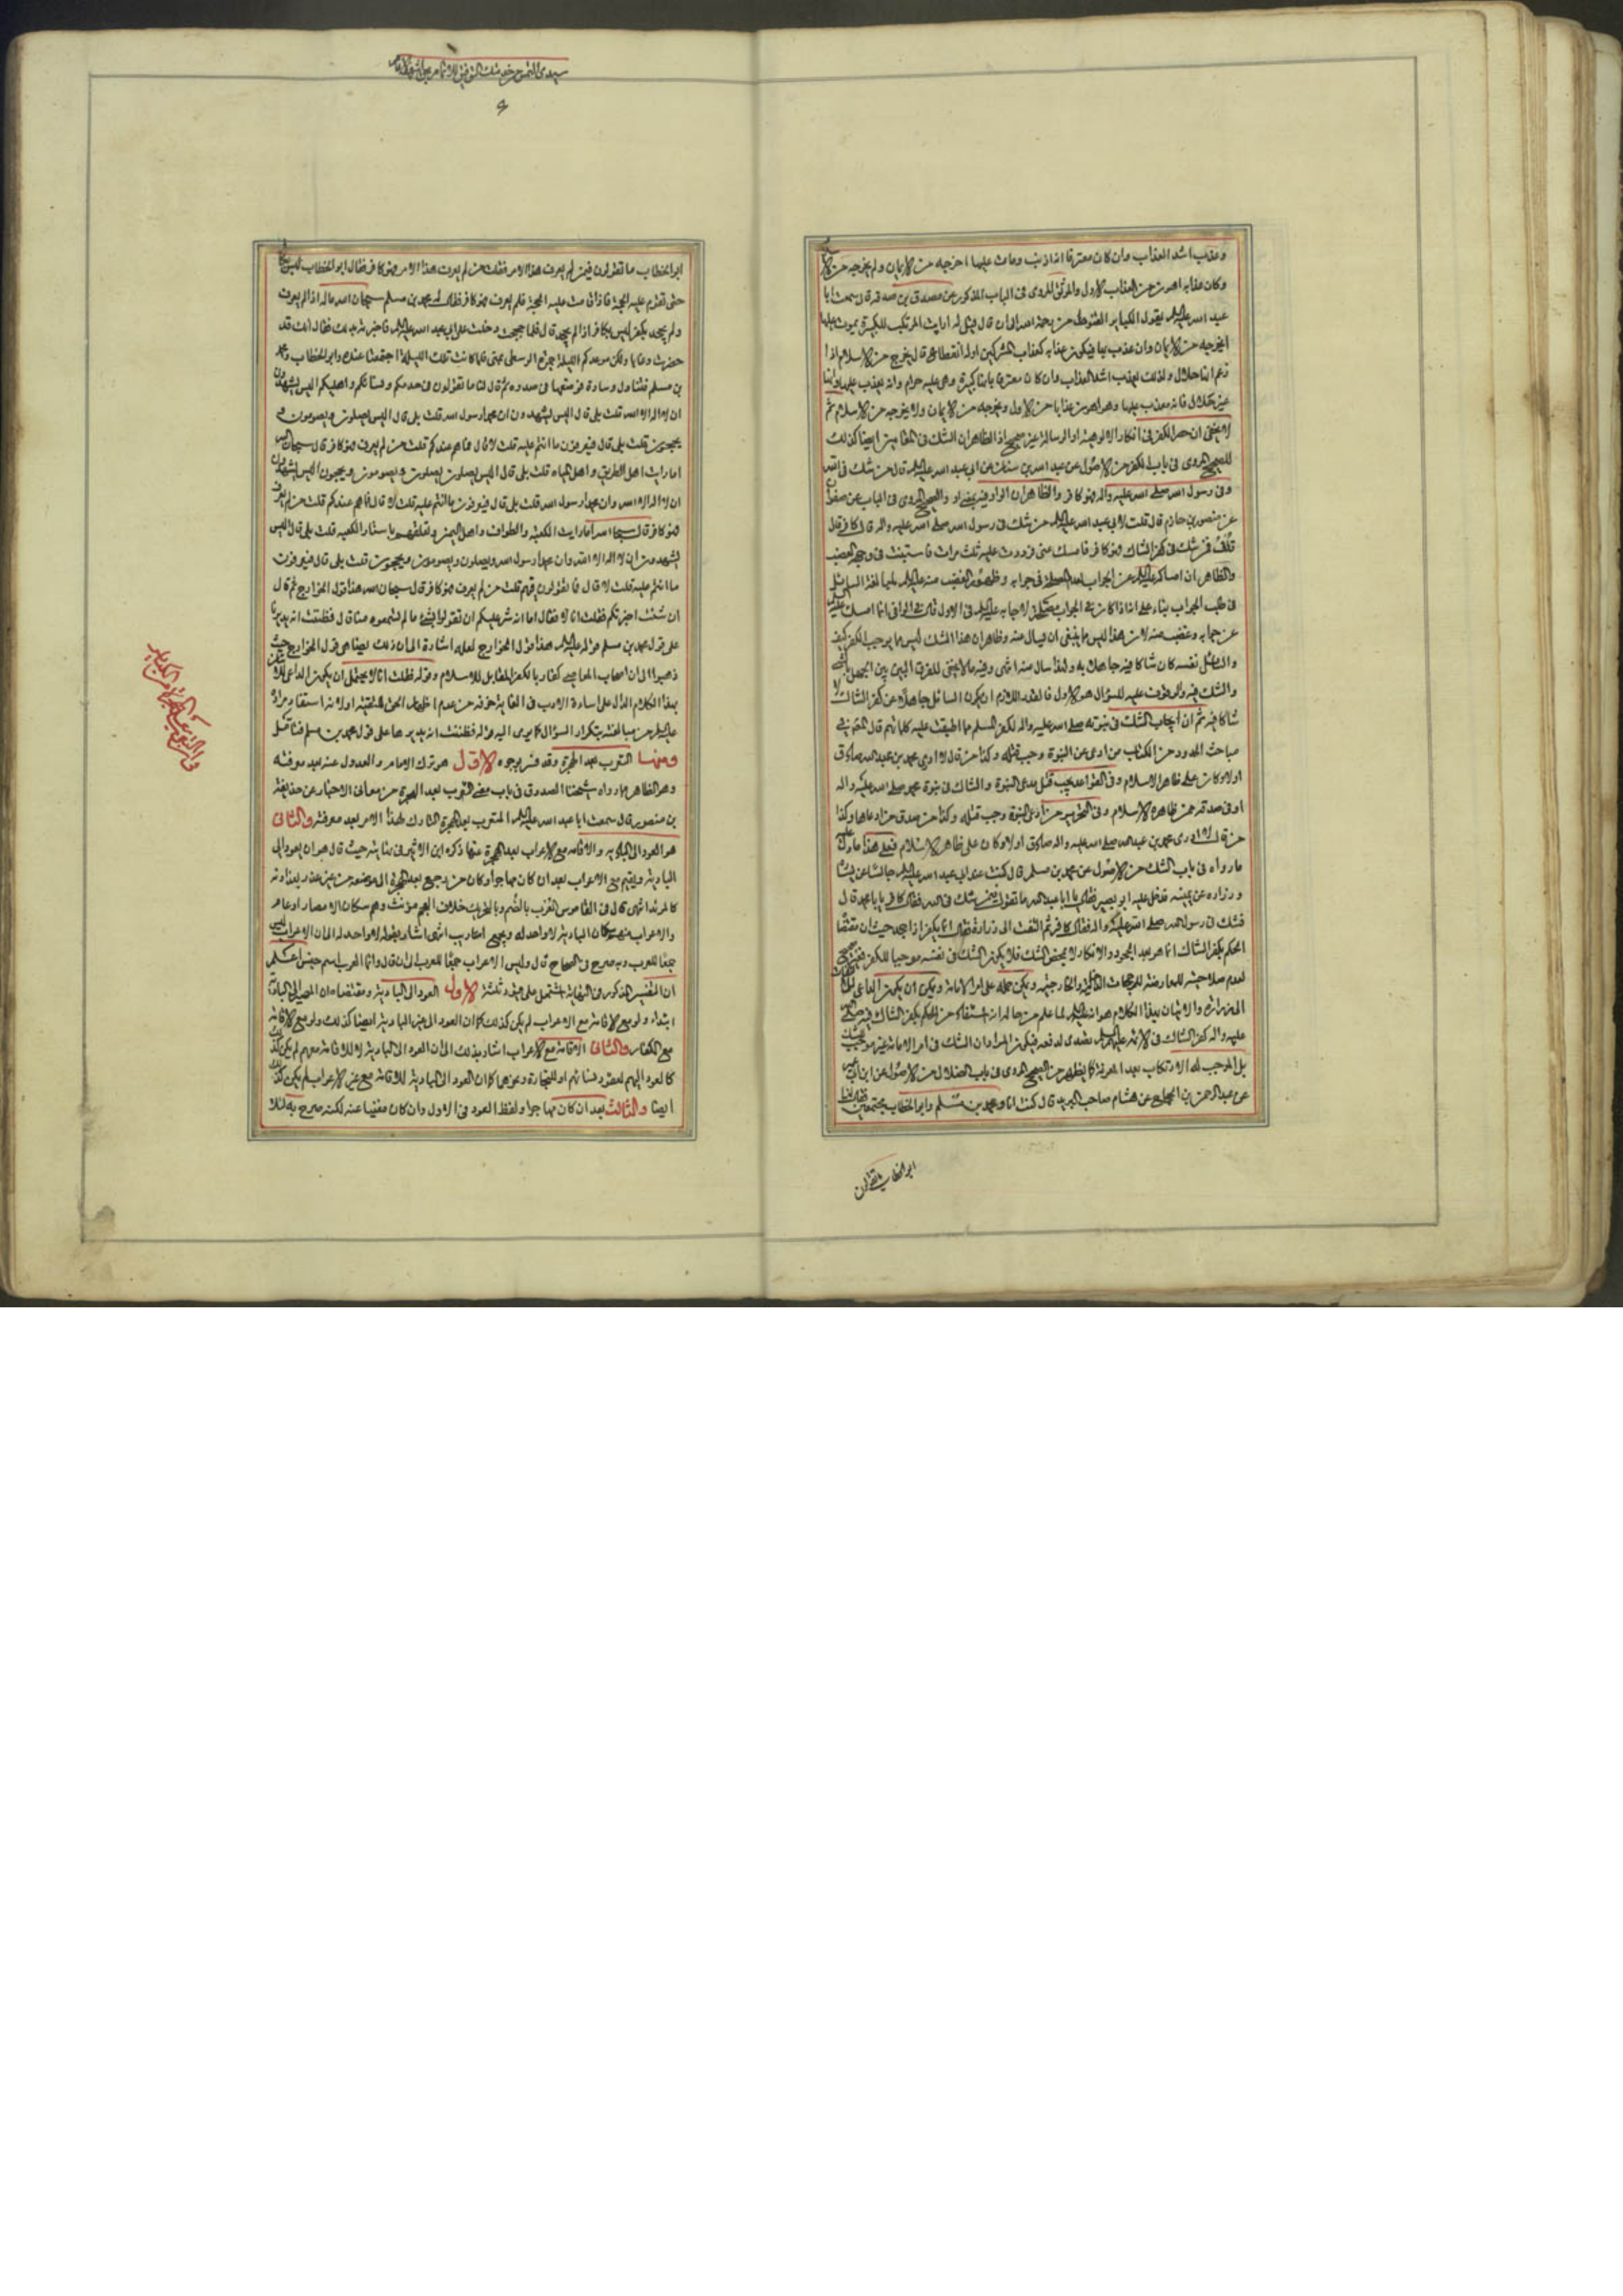 وعذب اشد العذاب وان كان معترفا انه اذنب ومات عليها اخرجه من الايمان ولم يخرجه من الا
وكان عذابه اهون من العذاب الاول والموثق المروى فى الباب المذكور عن مصدق بن صدقة قال سمعت ابا
عبد الله عليه السلم يقول الكباير القنوط من رحمة الله الى ان قال فقيل له ارايت المرتكب للكبيرة يموت عليها
ايخرجه من الايمان وان عذب بها فيكون عذابه كعذاب المشركين اوله انقطاع قال يخرج من الاسلام اذا
زعم انها حلال ولذلك يعذب اشد العذاب وان كان معترفا بانها كبيرة وهى عليه حرام وانه يعذب عليها وانها
غير حلال فانه معذب عليها وهو اهون عذابا من الاول ويخرجه من الايمان ولا يخرجه من الاسلام ثم
لا يخفى ان حصر الكفر فى انكار الالوهية او الرسالة غير صحيح اذ الظاهر ان الشك فى المقامين ايضا كذلك
للصحيح المروى فى باب الكفر من الاصول عن عبد الله بن سنان عن ابى عبد الله عليه السلم قال من شك فى الله
وفى رسول الله صلى الله عليه واله فهو كافر والظاهر ان الواو فيه بمعنى او والصحيح المروى فى الباب عن صفوان
عن منصور بن حازم قال قلت لابى عبد الله عليه السلم من شك فى رسول الله صلى الله عليه واله قال كافر قال
قلت فمن شك فى كفر الشاك فهو كافر فامسك عنى فرددت عليه ثلث مرات فاستبنت فى وجهه الغضب
والظاهر ان امساكه عليه السلم عن الجواب لعدم المصلحة فى جوابه وظهور الغضب منه عليه السلم لمبالغة السائل
فى طلب الجواب بناء على انه اذا كان فى الجواب مصلحة لاجابه عليه السلم فى الاول قال فى الوافى انما امسك عليه السلم
عن جوابه وغضب منه لان هذا ليس مما ينبغى ان يسال عنه وظاهر ان هذا الشك ليس مما يوجب الكفر كيف
والسائل نفسه كان شاكا فيه جاهلا به ولهذا سال عنه انتهى وفيه ما لا يخفى للفرق البين بين الجهل بالشئ
والشك فيه والموقوف عليه للسؤال هو الاول فالقدر اللازم ان يكون السائل جاهلا عن كفر الشاك لا
شاكا فيه ثم ان ايجاب الشك فى نبوته صلى الله عليه واله لكفر المسلم مما اطبقت عليه كلماتهم قال المحقق فى
مباحث الحدود من الكتاب من ادعى النبوة وجب قتله وكذا من قال لا ادرى محمد بن عبد الله صادق
اولا وكان على ظاهر الاسلام وفى القواعد يجب قتل مدعى النبوة والشاك فى نبوة محمد صلى الله عليه واله
او فى صدقه ممن ظاهره الاسلام وفى التحرير من ادعى النبوة وجب قتله وكذا من صدق من ادعاها وكذا
من قال لا ادرى محمد بن عبد الله صلى الله عليه واله صادق اولا وكان على ظاهر الاسلام فعلى هذا
ما رواه فى باب الشك من الاصول عن محمد بن مسلم قال كنت عند ابى عبد الله عليه السلم جالسا عن يساره
وزرارة عن يمينه فدخل عليه ابو بصير فقال يا ابا عبد الله ما تقول فيمن شك فى الله فقال كافر يا ابا محمد قال
فشك فى رسول الله صلى الله عليه واله فقال كافر ثم التفت الى زرارة فقال انما يكفر اذا جحد حيث ان مقتضا
الحكم بكفر الشاك انما هو بعد الجحود والانكار لا بمحض الشك فلا يكون الشك فى نفسه موجبا للكفر
لعدم صلاحيته للمعارضة للمرجحات الداخلية والخارجية ويمكن حمله على امر الامامة ويمكن ان يكون الداعى
الى زرارة والاتيان بهذا الكلام هو انه عليه السلم لما علم من حاله انه استفاد من الحكم بكفر الشاك فيه صلى الله
عليه واله كفر الشاك فى الائمة عليهم السلم تصدى لدفعه فيكون المراد ان الشك فى امر الامامة غير موجب
بل الموجب له الارتكاب بعد المعرفة كما يظهر من الصحيح المروى فى باب الضلال من الاصول عن ابن ابى عمير
عن عبد الرحمن بن الحجاج عن هشام صاحب البريد قال كنت انا ومحمد بن مسلم وابو الخطاب مجتمعين فقال لنا
ابو الخطاب ما تقولون
ابو الخطاب ما تقولون فيمن لم يعرف هذا الامر فقلت من لم يعرف هذا الامر فهو كافر فقال ابو الخطاب ليس بكافر
حتى تقوم عليه الحجة فاذا قامت عليه الحجة فلم يعرف فهو كافر فقال له محمد بن مسلم سبحان الله ماله اذا لم يعرف
ولم يجحد يكفر ليس بكافر اذا لم يجحد قال فلما حججت دخلت على ابى عبد الله عليه السلم فاخبرته بذلك فقال انك قد
حضرت وغابا ولكن موعدكم الليلة الجمرة الوسطى بمنى فلما كانت تلك الليلة اجتمعنا عنده وابو الخطاب ومحمد
بن مسلم فتناول وسادة فوضعها فى صدره ثم قال لنا ما تقولون فى خدمكم ونسائكم واهليكم اليس يشهدون
ان لا اله الا الله قلت بلى قال اليس يشهدون ان محمدا رسول الله قلت بلى قال اليس يصلون ويصومون و
يحجون قلت بلى قال فيعرفون ما انتم عليه قلت لا قال فما هم عندكم قلت من لم يعرف فهو كافر قال سبحان الله
اما رايت اهل الطريق واهل المياه قلت بلى قال اليس يصلون ويصومون ويحجون اليس يشهدون
ان لا اله الا الله وان محمدا رسول الله قلت بلى قال فيعرفون ما انتم عليه قلت لا قال فما هم عندكم قلت من لم يعرف
فهو كافر قال سبحان الله اما رايت الكعبة والطواف واهل اليمن وتعلقهم باستار الكعبة قلت بلى قال اليس
يشهدون ان لا اله الا الله وان محمدا رسول الله ويصلون ويصومون ويحجون قلت بلى قال فيعرفون
ما انتم عليه قلت لا قال فما تقولون فيهم قلت من لم يعرف فهو كافر قال سبحان الله هذا قول الخوارج ثم قال
ان شئت اخبرتكم فقلت انا لا فقال اما انه شر عليكم ان تقولوا بشئ ما لم تسمعوه منا قال فظننت انه يديرنا
على قول محمد بن مسلم قوله عليه السلم هذا قول الخوارج لعله اشارة الى ان ذلك يضاهى قول الخوارج حيث
ذهبوا الى ان اصحاب المعاصى كفار بالكفر المقابل للاسلام وقوله فقلت انا لا يحتمل ان يكون الداعى
بهذا الكلام الدال على اساءة الادب فى الغاية خوفه من عدم اظهار الحق للتقية او لانه استفاد مراده
عليه السلم من مبالغته بتكرار السؤال كما يومى اليه قوله فظننت انه يديرنا على قول محمد بن مسلم فتامل
ومنها التعرب بعد الهجرة وقد فسر بوجوه الاول هو ترك الامام والعدول عنه بعد معرفته
وهو الظاهر مما رواه شيخنا الصدوق فى باب معنى التعرب بعد الهجرة من معانى الاخبار عن حذيفة
بن منصور قال سمعت ابا عبد الله عليه السلم المتعرب بعد الهجرة التارك لهذا الامر بعد معرفته والثانى
هو العود الى البادية والاقامة مع الاعراب بعد الهجرة منها ذكره ابن الاثير فى نهايته حيث قال هو ان يعود الى
البادية ويقيم مع الاعراب بعد ان كان مهاجرا وكان من رجع بعد الهجرة الى موضعه من غير عذر يعدونه
كالمرتد انتهى قال فى القاموس العرب بالضم وبالتحريك خلاف العجم مؤنث وهم سكان الامصار او عام
والاعراب منهم سكان البادية لا واحد له ويجمع اعاريب انتهى اشار بقوله لا واحد له الى ان الاعراب ليس
جمعا للعرب وبه صرح فى الصحاح قال وليس الاعراب جمعا للعرب الى ان قال وانما العرب اسم جنس اعلم
ان التفسير المذكور فى النهاية يشتمل على قيود ثلثة الاول العود الى البادية ومقتضاه ان المصير الى البادية
ابتداء ولو مع الاقامة مع الاعراب لم يكن كذلك كما ان العود الى غير البادية ايضا كذلك ولو مع الاقامة
مع الكفار والثانى الاقامة مع الاعراب اشار بذلك الى ان العود الى البادية لا للاقامة معهم لم يكن كذلك
كالعود اليهم لعقود نسائهم او للتجارة وغيرها كما ان العود الى البادية للاقامة مع غير الاعراب لم يكن كذلك
ايضا والثالث بعد ان كان مهاجرا ولفظ العود فى الاول وان كان مغنيا عنه لكنه صرح به لئلا